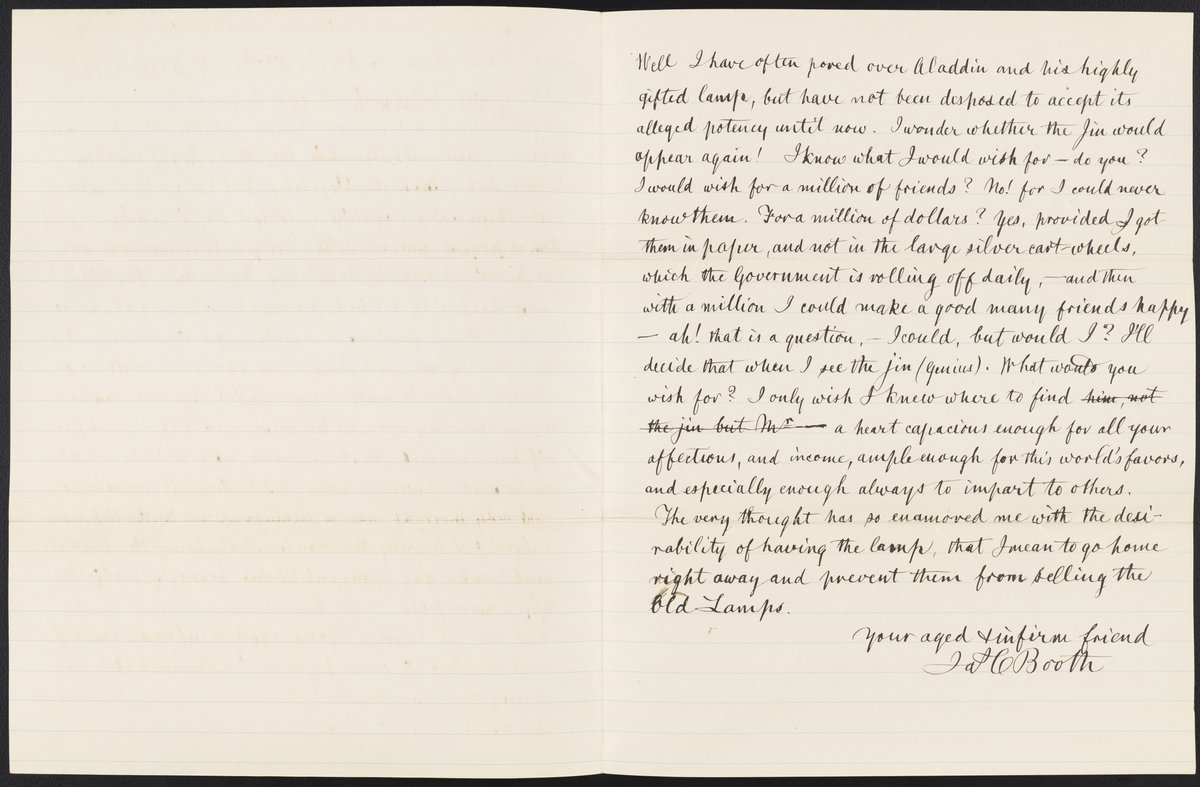 Well I have often pored over Aladdin and his highly
gifted lamp, but have not been disposed to accept its
alleged potency until now. I wonder whether the Jin would
appear again! I know what I would wish for – do you?
I would wish for a million of friends? No! for I could never
know them. For a million of dollars? Yes, provided I got
them in paper, and not in the large silver cart-wheels,
which the Government is rolling off daily, – and then
with a million I could make a good many friends happy
– ah! that is a question, – I could, but would I? I'll
decide that when I see the jin (genius). What would you
wish for? I only wish I knew where to find him, not
the jin but Mr — a heart capacious enough for all your
affections, and income, ample enough for this world's favors,
and especially enough always to impart to others.
The very thought has so enamored me with the desi-
rability of having the lamp, that I mean to go home
right away and prevent them from selling the
Old Lamps.
Your aged & infirm friend
Jas C Booth